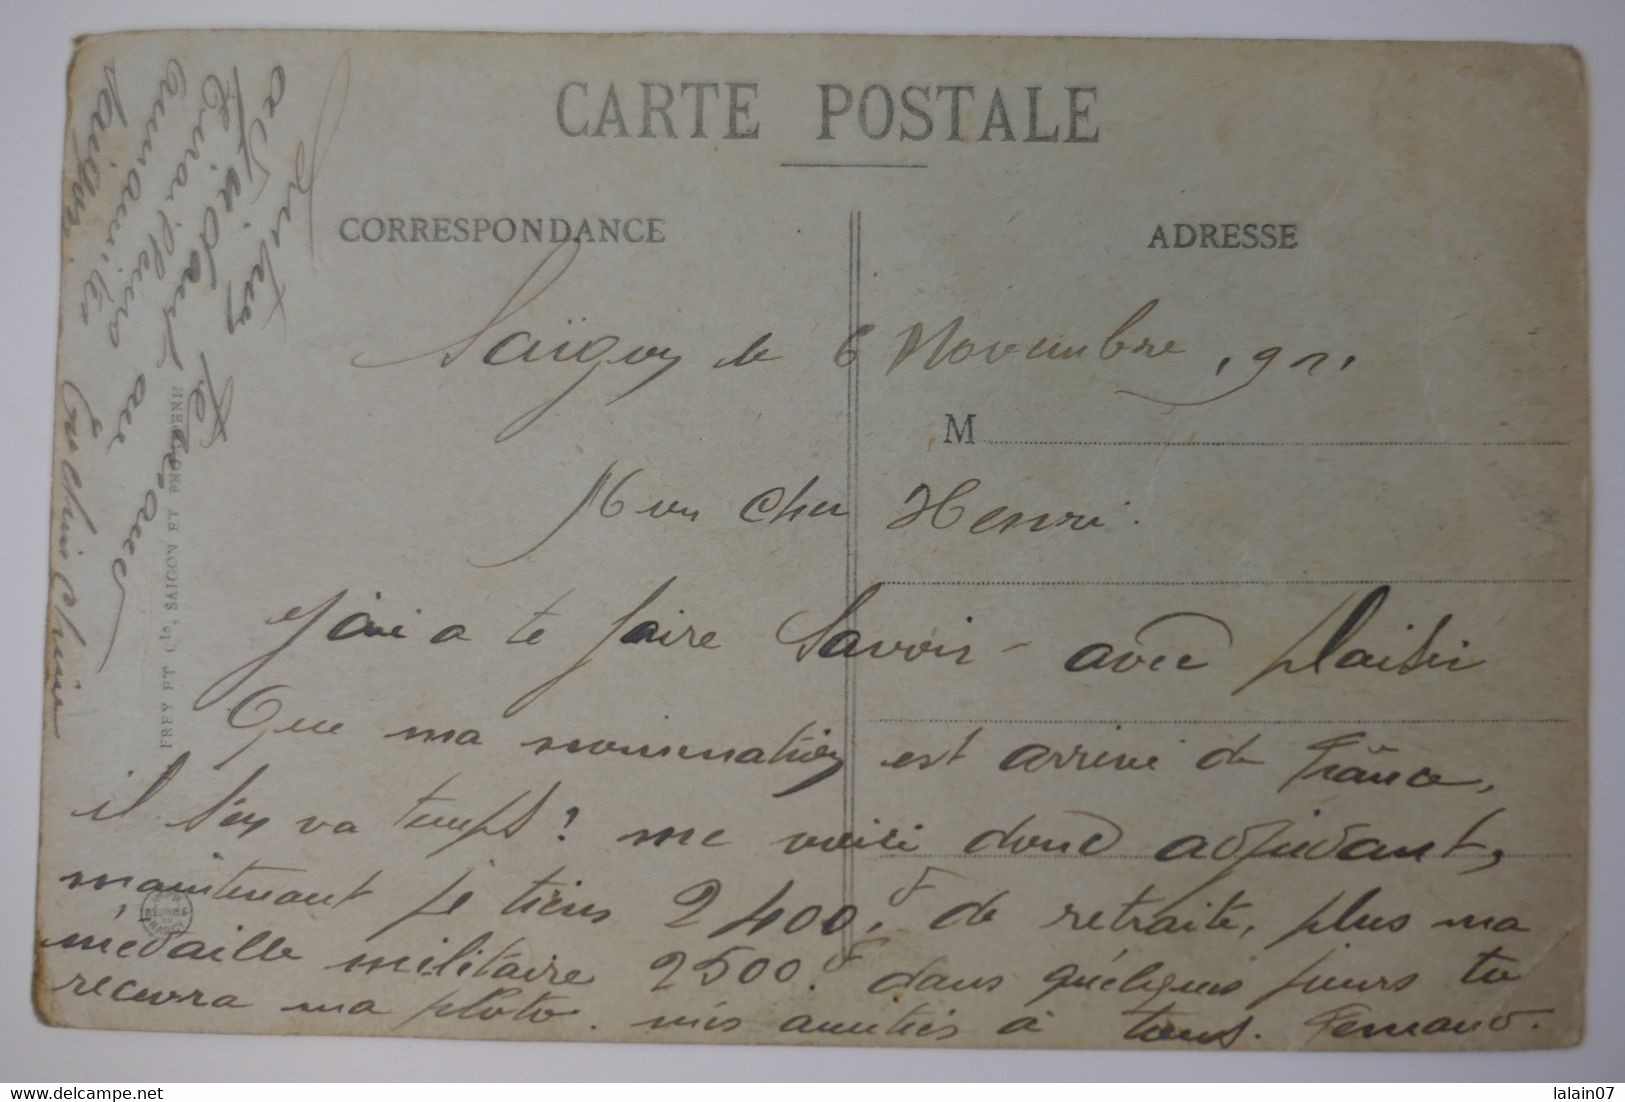 CARTE POSTALE
CORRESPONDANCE
ADRESSE
Saïgon le 6 Novembre 1921
M
Mon cher Henri.
J'ai a te faire Savoir avec plaisir
Que ma nomination est arrivé de France,
il s'en va temps ! me voici donc adjudant,
maintenant je tiens 2400F de retraite, plus ma
médaille militaire 2500.F dans quelques jours tu
recevra ma photo. mes amitiés à tous. Fernand.
FREY ET Cie, SAIGON ET PNOM-PENH
adjudant
au
Saigon. Cochinchine
lalain07